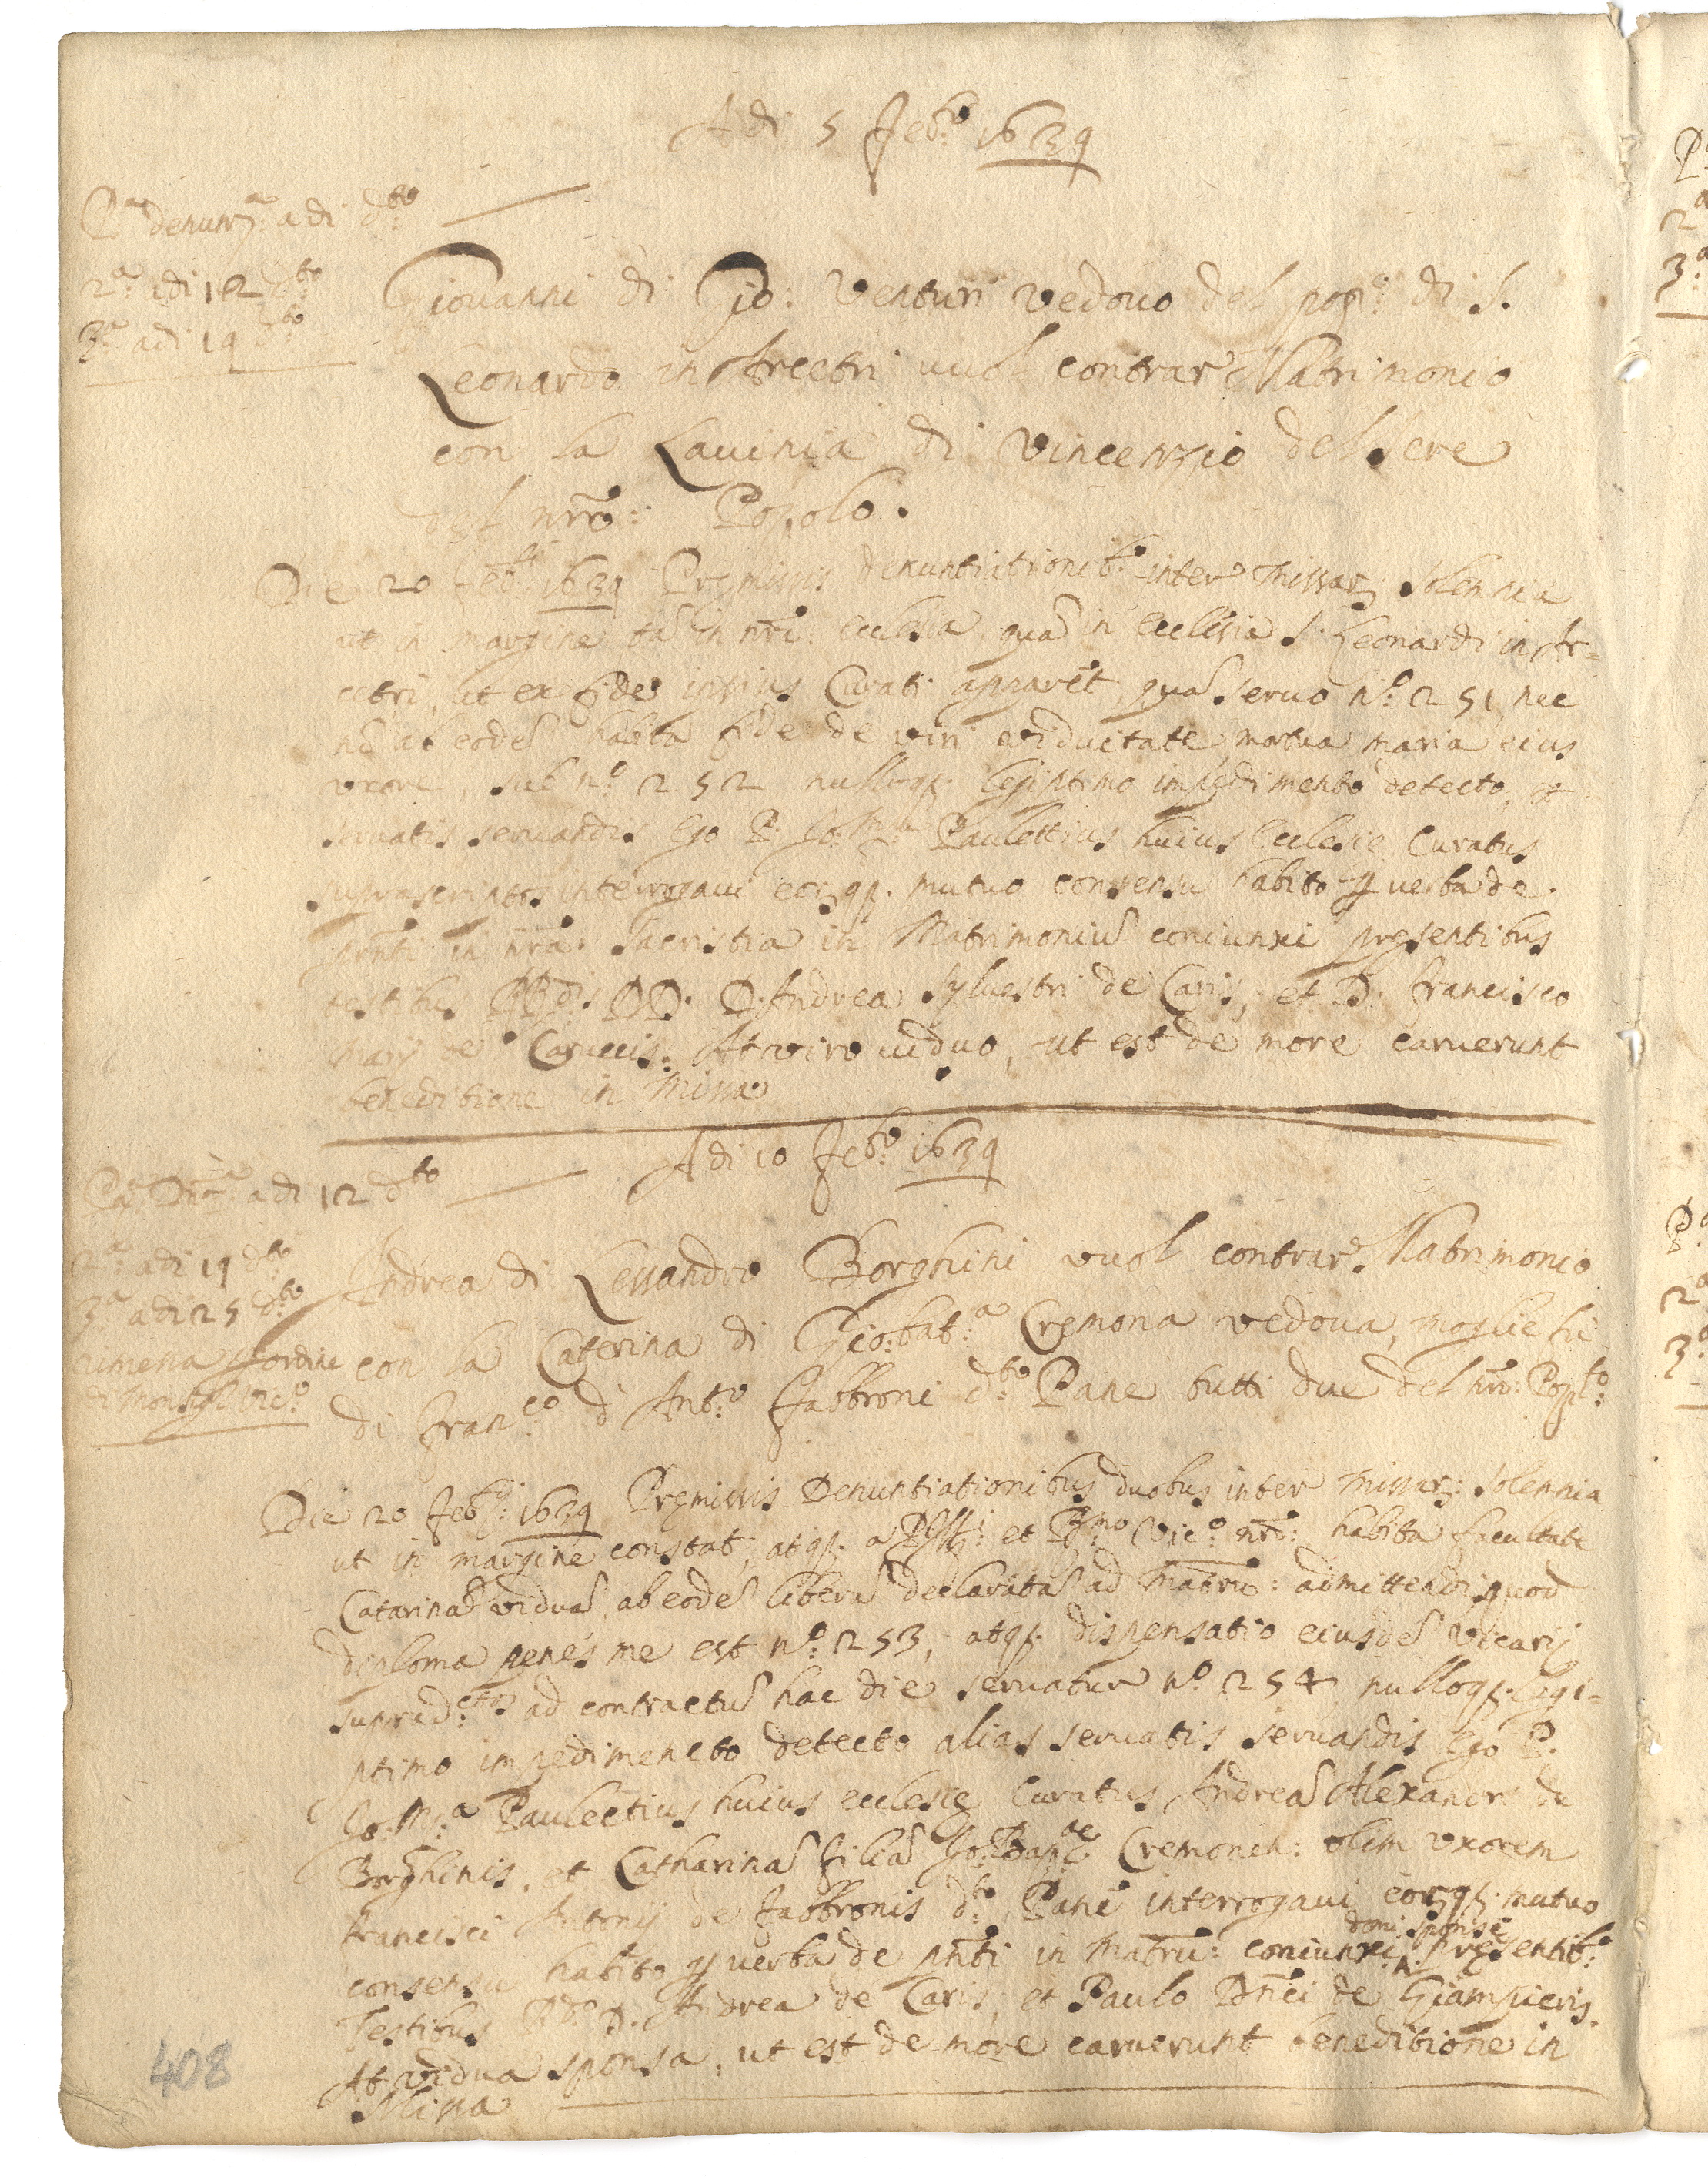 Adi 5 Feb.o 1639
P.a denunz.a adi d.to
2.a adi 12 d.to
3.a adi 19 d.to
Giovanni di Gio: Venturi vedovo del pop.o di S.
Leonardo in Arcetri vuol contrar Matrimonio
con la Lavinia di Vincenzio del Sere
del nro: Popolo.
Die 20 Feb. 1639 Premissis denuntiationib. inter Missar. Solemnia
ut in margine tã in nra: ecclesia, quã in Ecclesia S. Leonardi in Ar=
cetri, ut ex fide ipsius Curati apparet, quã servo n.o 251, nec
nõ ab eodẽ habita fide de viri viduitate, mortua Maria eius
uxore, sub n.o 252 nulloq. legiptimo impedimento detecto, et
servatis servandis Ego P. Jo. M.a Paulettius huius Ecclesie Curatus
suprascriptos interrogavi eor.q. mutuo consensu habito p verba de
pnti in nra: Sacristia in Matrimoniũ coniunxi presentibus
testibus RR.dis DD. D. Andrea Sylvestri de Caris, et D. Francisco
Marij de Caruccis. At viro viduo, ut est de more caruerunt
beneditione in Missa
Adi 10 Feb.o 1639
P.a Dn.a adi 12 d.to
2.a adi 19 d.to
3.a adi 25 d.to
rimessa p ordine
di Mons.r Vic.o
Andrea di Lessandro Borghini vuol contrar. Matrimonio
con la Caterina di Gio:bat.a Cremona vedova, moglie fù
di Fran.co d'Ant.o Fabbroni d.to Pane tutti due del nro: Pop.lo
Die 20 Feb.ij 1639 Premissis Denuntiationibus duobus inter Missar: Solemnia
ut in margine constat, atq. a et R.mo Vic.o nro: habita facultate
Catarinã viduã, ab eodẽ liberã declaratã ad Matrũ: admittendi, quod
diploma penes me est n.o 253, atq. dispensatio eiusdẽ Vicarij
suprad.cto ad contractũ hac die servatur n.o 254 nulloq. legi=
ptimo impedimento detecto alias servatis servandis Ego P.
Jo. M.a Paulectius huius ecclesie Curatus, Andreã Alexandri de
Borghinis, et Catharinã filiã Jo.Bap.ae Cremonen: olim uxorem
Francisci Antonij de Fabbronis d.to Pane interrogavi eor.q. mutuo
domi sponsi
consensu habito p verba de pnti in Matrũ: coniunxi presentib.
Testibus R.do D. Andrea de Caris, et Paulo Dnici de Giampieris.
At vidua sponsa, ut est de more caruerunt beneditione in
Missa
408